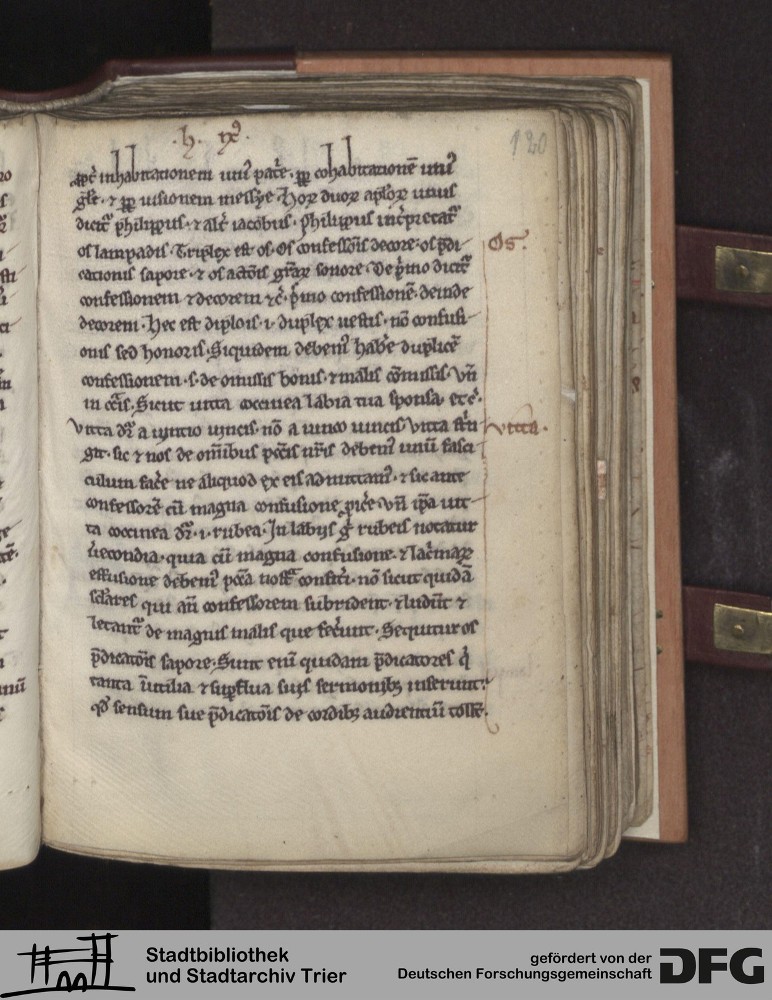 .h. ix9.
120
inhabitationem uni9 pat̄e. cohabitationē uni9
uisionem messye. hoꝝ duoꝝ apl̓oꝝ unus
dicit᷑ philippus. ⁊ alt̓ iacobus. philippus int̓pretat᷑
os lampadis. Triplex est os. os confessiōis decore. os p̄di-
cationis sapore. ⁊ os actōis gr̄aꝝ sonore. De p̓mo dicit᷑
confessionem ⁊ decorem ⁊c̓. p̓mo confessionē. deinde
decorem. hec est diplois .i. duplex uestis. nō confusi-
onis sed honoris. Siquidem debem9 hab̓e duplicē
confessionem .s. de omissis bonis. ⁊ malis cōmissis. Vn̄
in cāt̓is. Sicut uitta coccinea labia tua sponsa. et c̓.
Vitta dr̄ a uincio uincis. nō a uinco uincis. Vitta
git. sic ⁊ nos de om̄ibus pccīs nr̄is debem9 unū fasci-
culum fac̓e ne aliquod ex eis admittam9. ⁊ sic ante
confessorē cū magna confusione ꝓic̓e. Vn̄ ip̄a uit-
ta coccinea dr̄ .i. rubea. In labijs g̓ rubeis notatur
u̓econdia. quia cū magna confusione. ⁊ lac̓maꝝ
effusione debem9 pcc̄a nost̄a confit̓i. nō sicut quidā
sc̄lares qui an̄ confessorem subrident. ⁊ ludūt ⁊
letant᷑ de magnis malis que fec̓unt. Sequitur os
p̄dicatōis sapore. Sunt enī quidam p̄dicatores q̓
tanta īutilia ⁊ sup̄flua suis sermonibꝫ inserunt.
qd̓ sensum sue p̄dicatōis de cordibꝫ audientiū toll̄t.
Os.
Vitta.
Stadtbibliothek
und Stadtarchiv Trier
gefördert von der
Deutschen Forschungsgemeinschaft
DFG